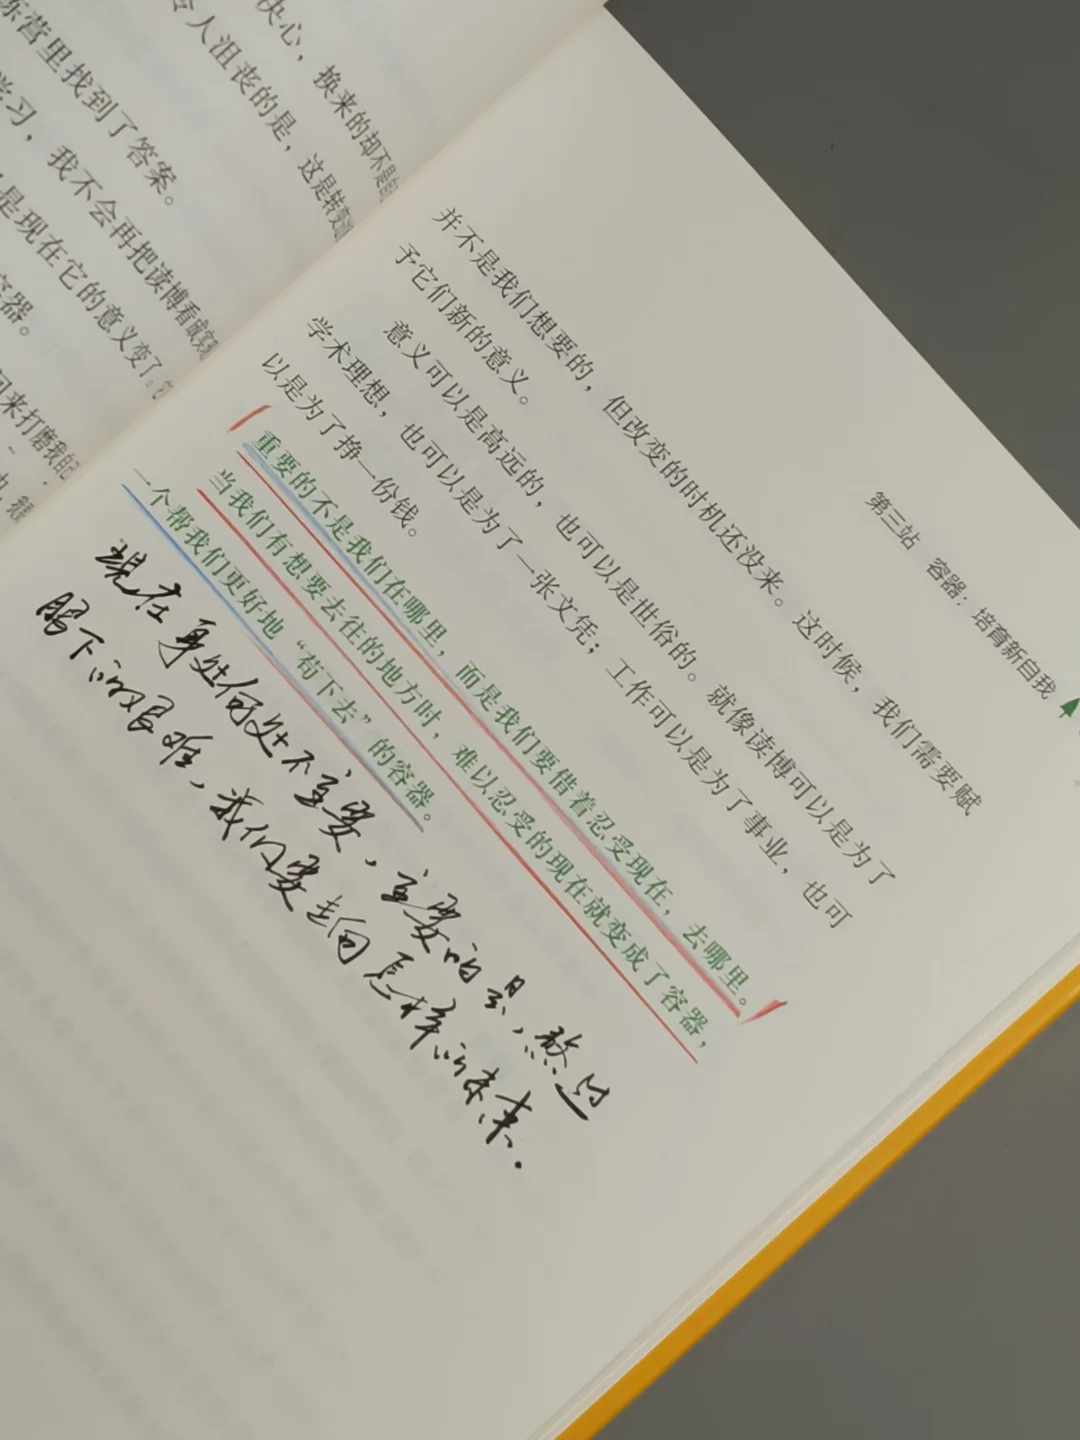 决心，换来的却不是
令人沮丧的是，这是转变
练营里找到了答案。
学习，我不会再把读博看成实现
是现在它的意义变了。它
容器。
来打磨我自己
第三站 容器：培育新自我
并不是我们想要的，但改变的时机还没来。这时候，我们需要赋
予它们新的意义。
意义可以是高远的，也可以是世俗的。就像读博可以是为了
学术理想，也可以是为了一张文凭；工作可以是为了事业，也可
以是为了挣一份钱。
重要的不是我们在哪里，而是我们要借着忍受现在，去哪里。
当我们有想要去往的地方时，难以忍受的现在就变成了容器，
一个帮我们更好地“苟下去”的容器。
现在身处何处不重要，重要的是，熬过
眼下的艰难，我们要走向怎样的未来.